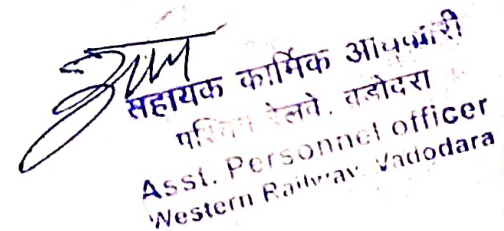 सहायक कार्मिक अधिकारी
पश्चिम रेलवे, वडोदरा
Asst. Personnel officer
Western Railway, Vadodara